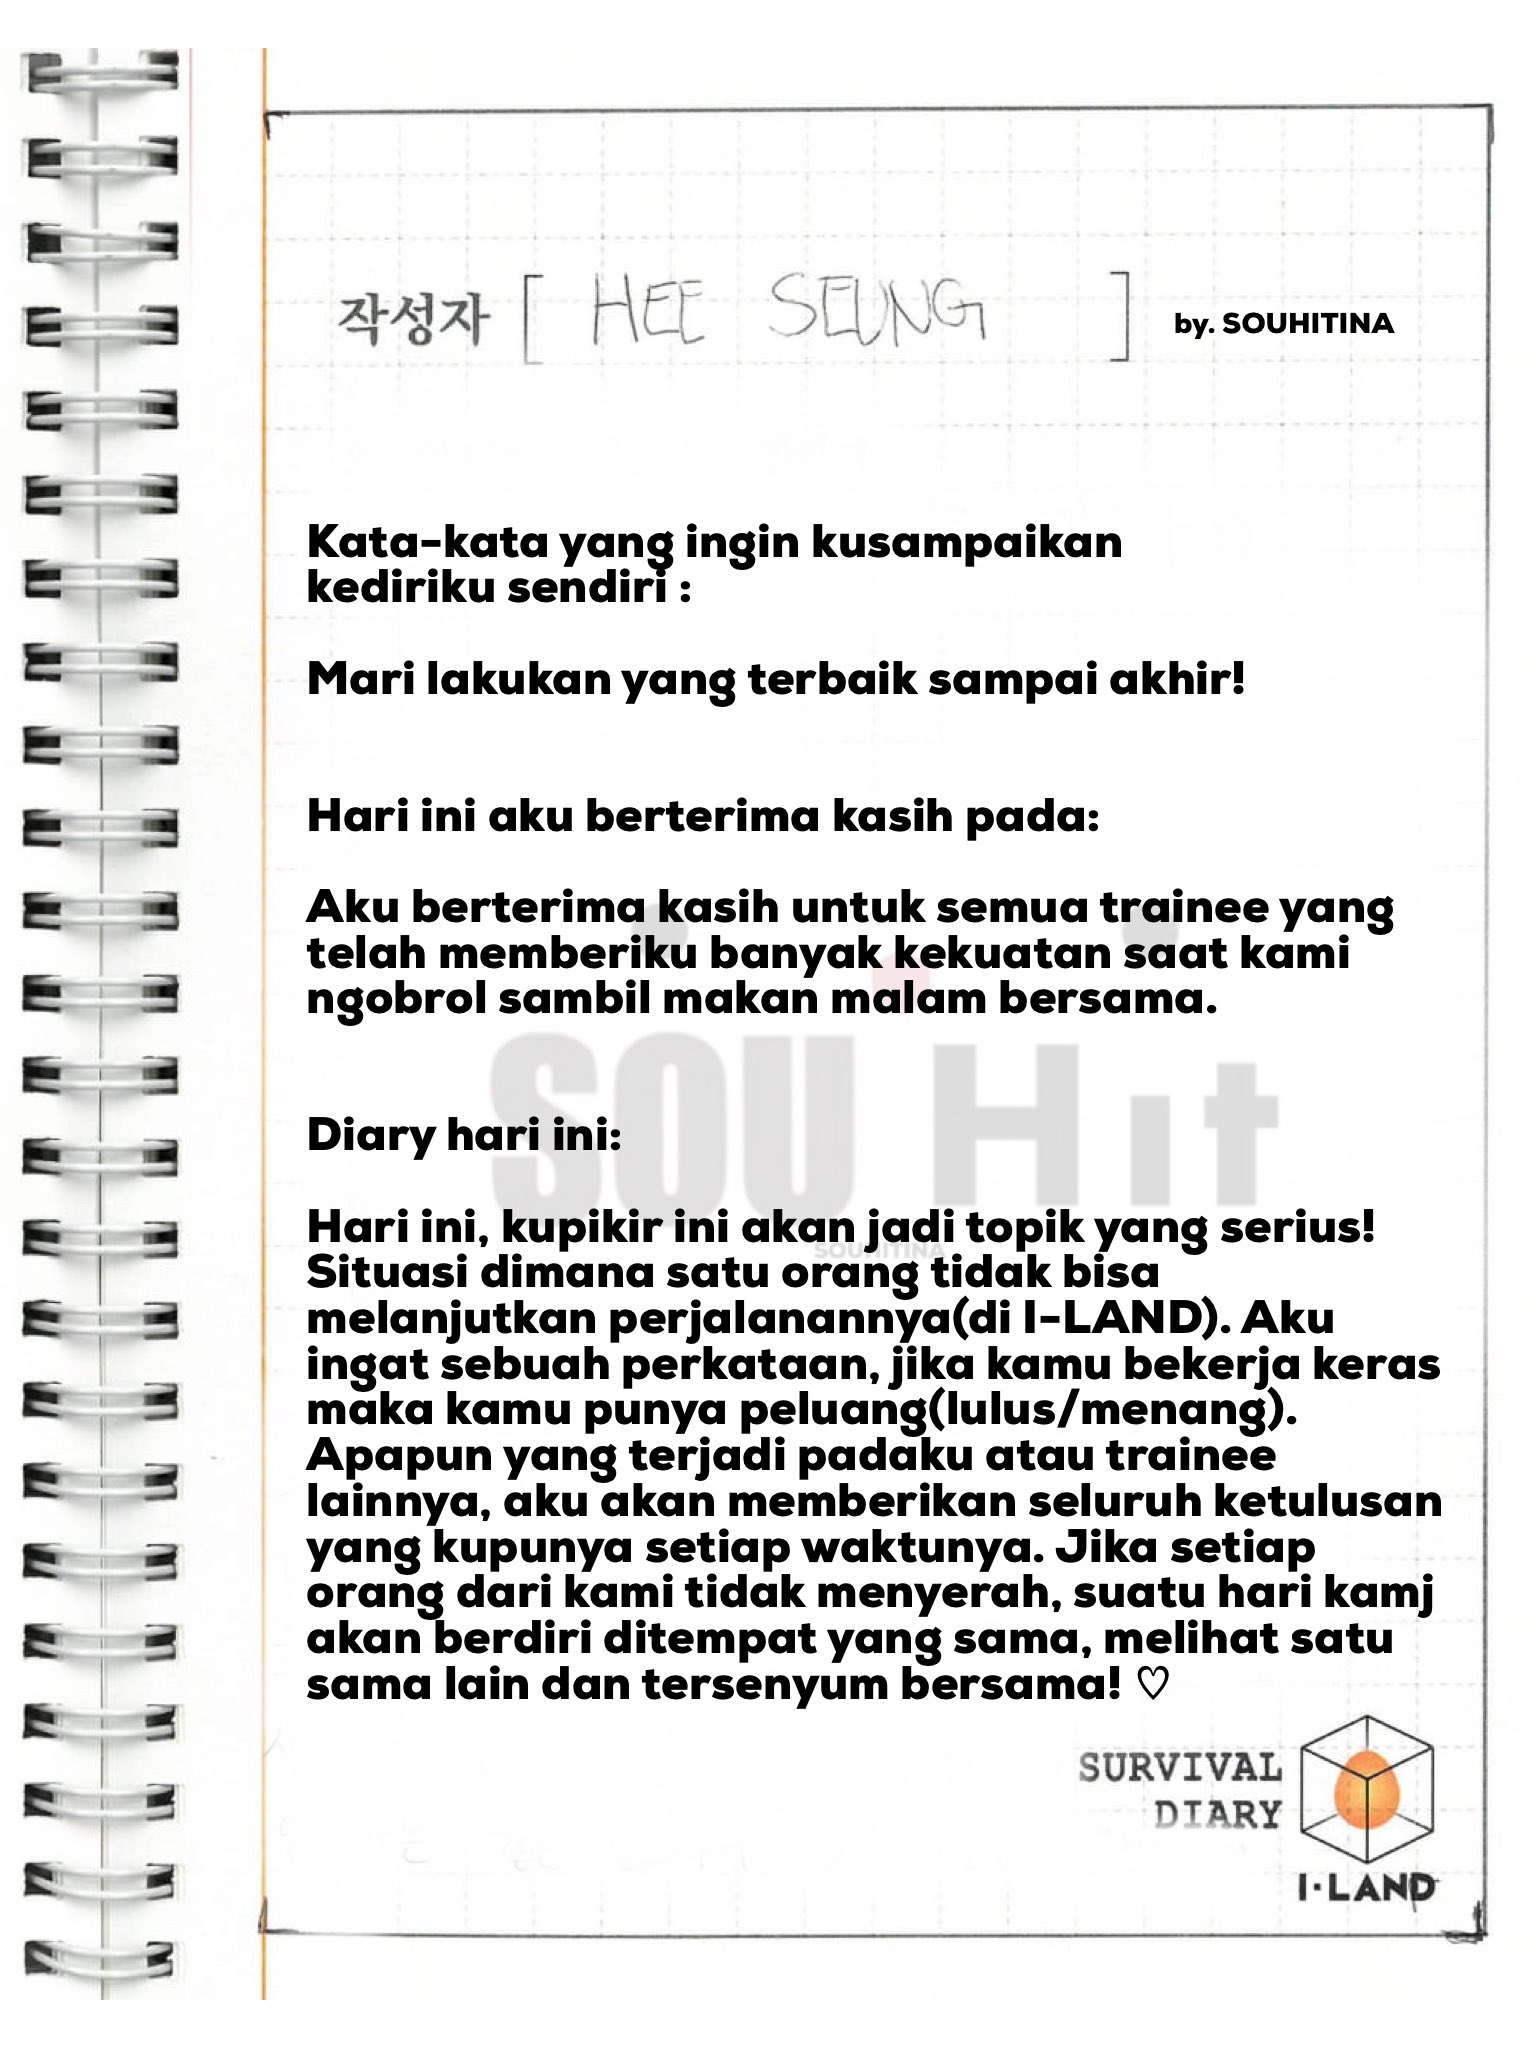 작성자 [ HEE SEUNG ] by. SOUHITINA
Kata-kata yang ingin kusampaikan
kediriku sendiri :
Mari lakukan yang terbaik sampai akhir!
Hari ini aku berterima kasih pada:
Aku berterima kasih untuk semua trainee yang
telah memberiku banyak kekuatan saat kami
ngobrol sambil makan malam bersama.
SOU Hit
Diary hari ini:
Hari ini, kupikir ini akan jadi topik yang serius!
SOUHITINA
Situasi dimana satu orang tidak bisa
melanjutkan perjalanannya(di I-LAND). Aku
ingat sebuah perkataan, jika kamu bekerja keras
maka kamu punya peluang(lulus/menang).
Apapun yang terjadi padaku atau trainee
lainnya, aku akan memberikan seluruh ketulusan
yang kupunya setiap waktunya. Jika setiap
orang dari kami tidak menyerah, suatu hari kamj
akan berdiri ditempat yang sama, melihat satu
sama lain dan tersenyum bersama! ♡
SURVIVAL
DIARY
I·LAND